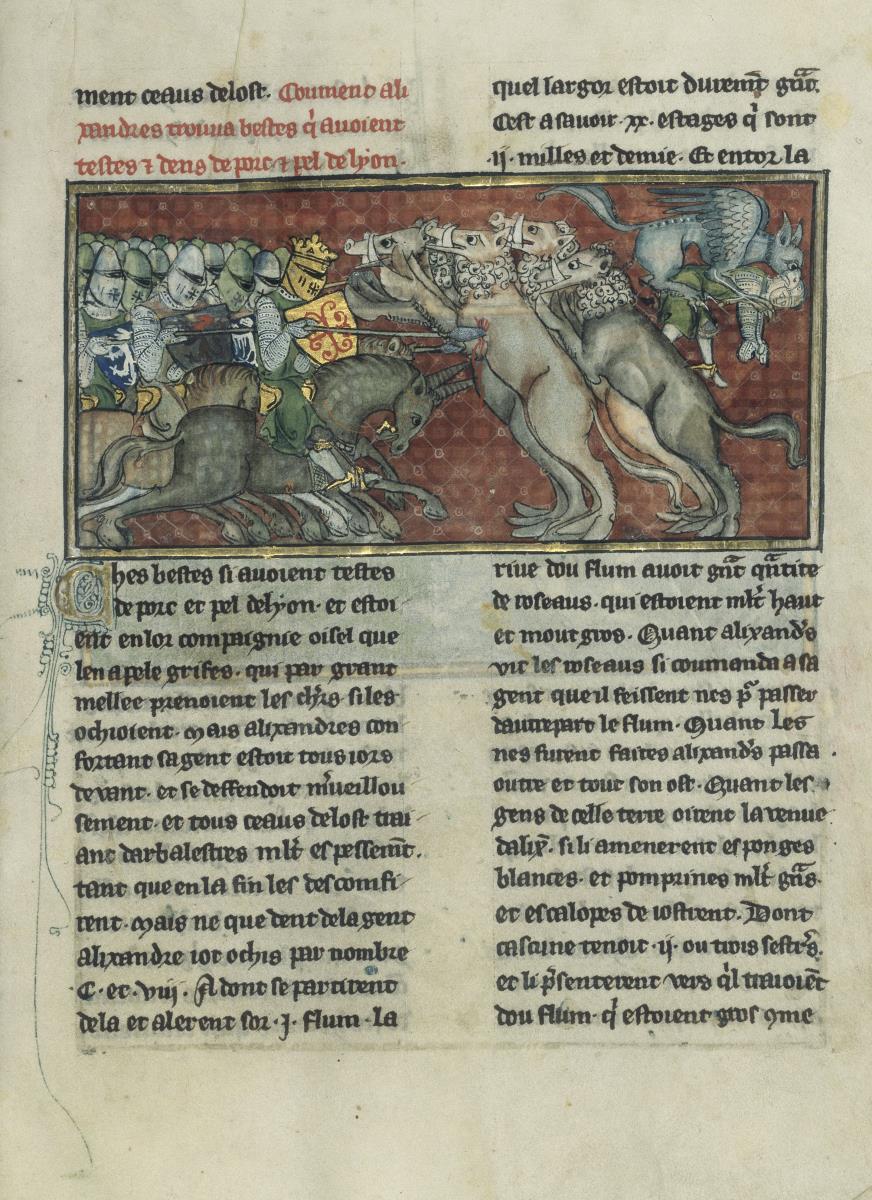 ment ceaus delost. Coument ali
xandres trouua bestes q̇ auoient
testes ⁊ dens de porc ⁊ pel de lyon.
Ches bestes si auoient testes
de porc et pel de lyon. et estoi
ent en lor compaignie oisel que
len apele grifes. qui par grant
mellee prenoient les chl̄rs si les
ochioient. Mais alixandres con
fortant sa gent estoit tous iors
deuant. et se deffendoit mˀueillou
sement. et tous ceaus delost trai
ant darbalestres ml̄t espessemēt.
tant que en la fin les desconfi
rent. Mais ne que dent de la gent
alixandre i ot ochis par nombre
.C. et .viij. Adont se partirent
de la et alerent sor .j. flum. la
quel largor estoit duremēt gᵃ̄t.
Cest asauoir .xx. estages q̇ sont
.ij. milles et demie. Et entor la
riue dou flum auoit gᵃ̄t qᵃ̄tite
de roseaus. qui estoient ml̄t haut
et mout gros. Quant alixandˀs
vit les roseaus si coumanda a sa
gent que il feissent nes pˀ passer
dautrepart le flum. Quant les
nes furent faites alixandˀs passa
outre et tout son ost. Quant les
gens de celle terre oirent la venue
dalix̄. si li amenerent esponges
blances. et pomprines ml̄t gᵃ̄s.
et escalopes de iostrent. Dont
cascune tenoit .ij. ou trois sestˀs.
et li pˀsenterent vers q̇l traioiēt
dou flum. q̇ estoient gros ꝯme